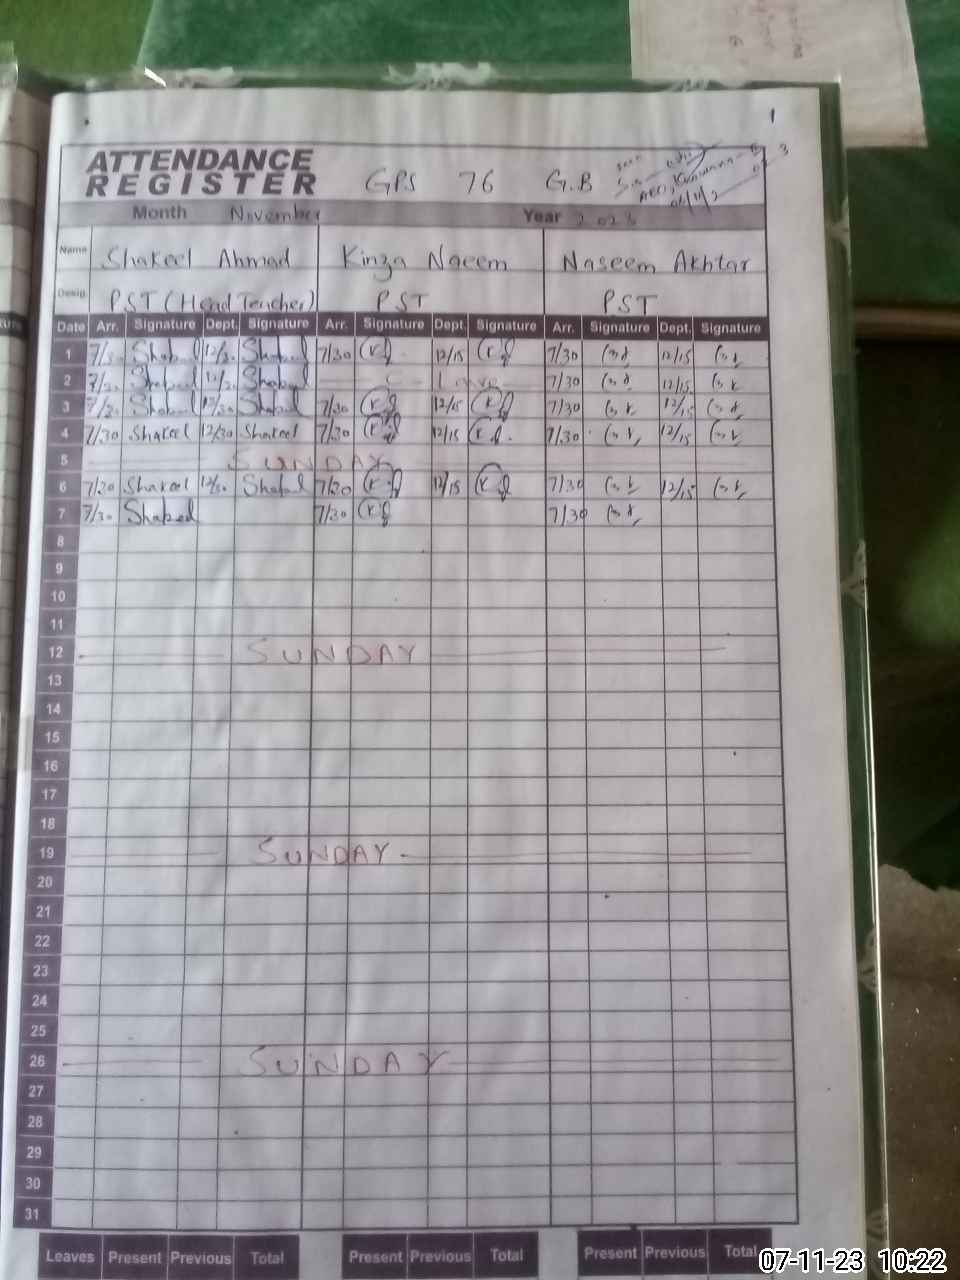 1
ATTENDANCE
REGISTER GPS 76 G.B
seen
Month November Year 2023
Name Shakeel Ahmad Kinza Naeem Naseem Akhtar
Desig. PST (Head Teacher) PST PST
Date Arr. Signature Dept. Signature Arr. Signature Dept. Signature Arr. Signature Dept. Signature
1 7/30 Shakeel 12/30 Shakeel 7/30 12/15 7/30 12/15
2 7/30 Shakeel 12/30 Shakeel C - Leave 7/30 12/15
3 7/30 Shakeel 12/30 Shakeel 7/30 12/15 7/30 12/15
4 7/30 Shakeel 12/30 Shakeel 7/30 12/15 7/30 12/15
5 SUNDAY
6 7/30 Shakeel 12/30 Shakeel 7/30 12/15 7/30 12/15
7 7/30 Shakeel 7/30 7/30
8
9
10
11
12 SUNDAY
13
14
15
16
17
18
19 SUNDAY
20
21
22
23
24
25
26 SUNDAY
27
28
29
30
31
Leaves Present Previous Total Present Previous Total Present Previous Total
07-11-23 10:22